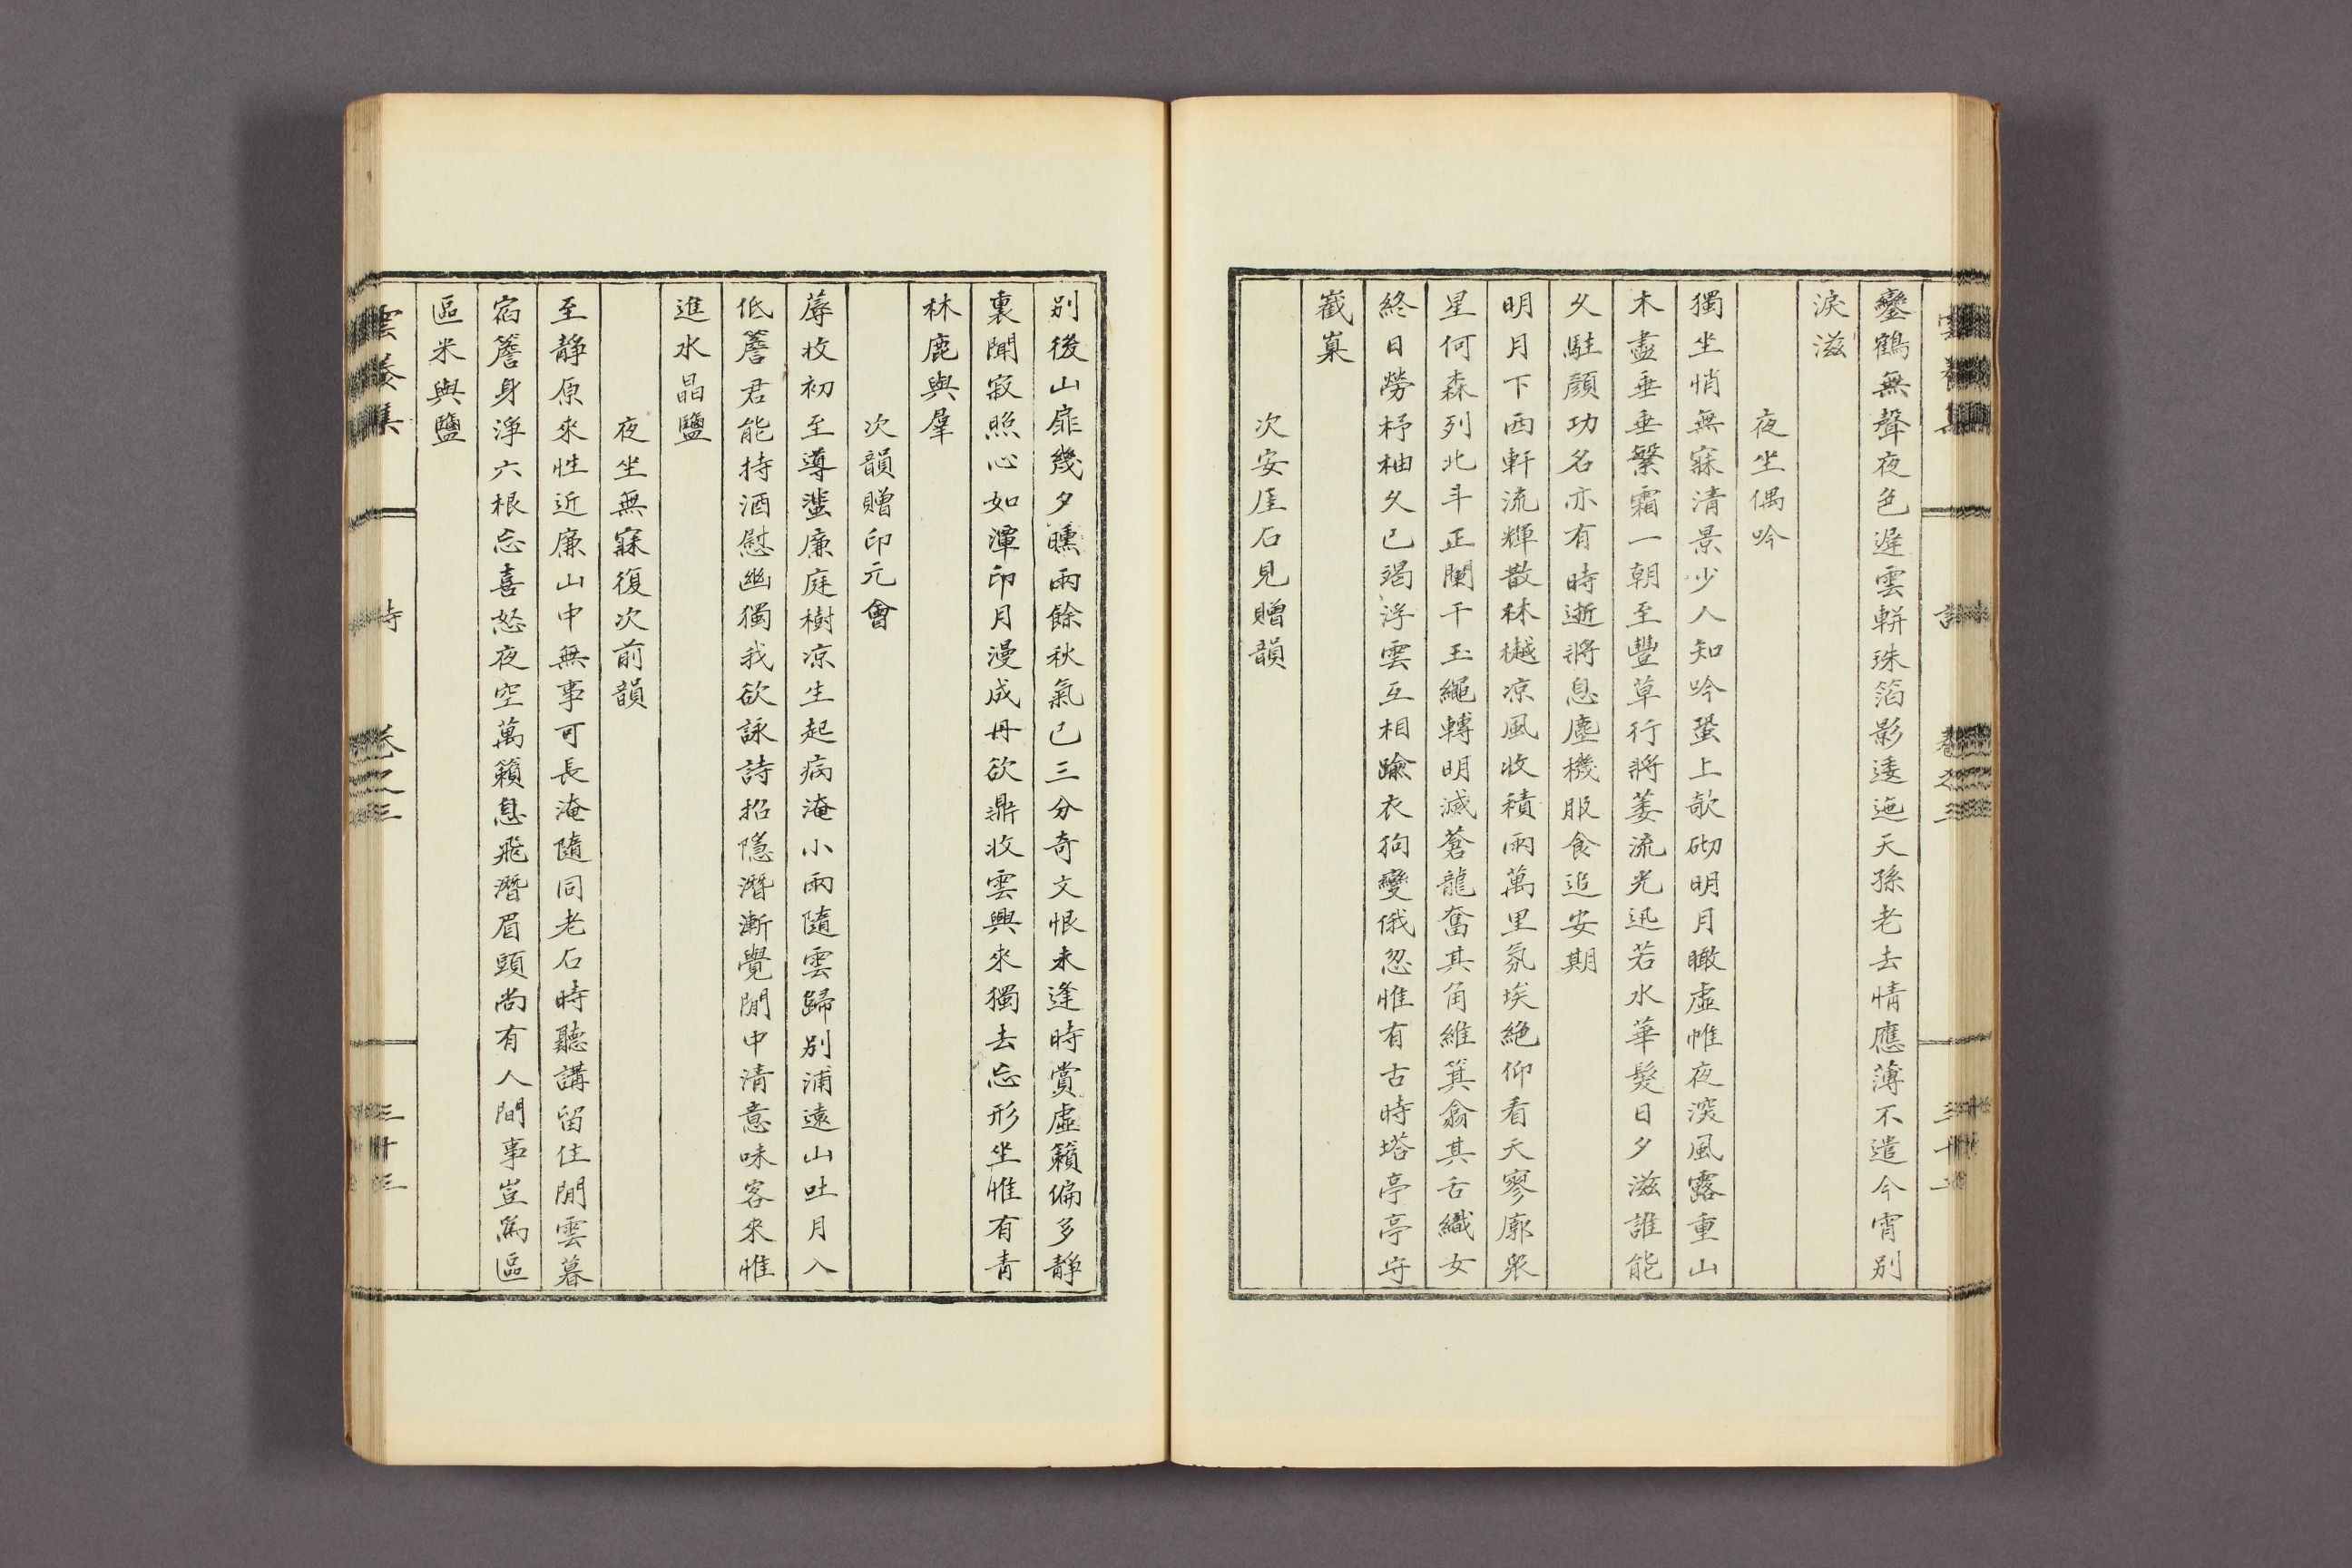 鸞鶴無聲夜色遅雲軿珠箔影逶迤天孫老去情應薄不遣今宵別
淚滋
夜坐偶吟
獨坐悄無寐清景少人知吟蛩上欹砌明月瞰虛帷夜深風露重山
木盡垂垂繁霜一朝至豐草行將萎流光迅若水華髮日夕滋誰能
久駐顔功名亦有時逝將息塵機服食追安期
明月下西軒流輝散林樾凉風收積雨萬里氛埃絶仰看天寥廓衆
星何森列北斗正闌干玉繩轉明滅蒼龍奮其角維箕翕其舌織女
終日勞杼柚久已竭浮雲互相踰衣狗變俄忽惟有古時塔亭亭守
嶻嶪
次安厓石見贈韻
別後山扉幾夕曛雨餘秋氣已三分奇文恨未逢時賞虛籟偏多靜
裏聞寂照心如潭印月漫成丹欲鼎收雲興來獨去忘形坐惟有靑
林鹿與羣
次韻贈印元會
蓐收初至導蜚廉庭樹凉生起病淹小雨隨雲歸別浦遠山吐月入
低簷君能持酒慰幽獨我欲詠詩招隱潛漸覺閒中清意味客來惟
進水晶鹽
夜坐無寐復次前韻
至靜原來性近廉山中無事可長淹隨同老石時聽講留住閒雲暮
宿簷身淨六根忘喜怒夜空萬籟息飛潛眉頭尚有人間事豈爲區
區米與鹽
雲養集 詩 卷之三 三十三